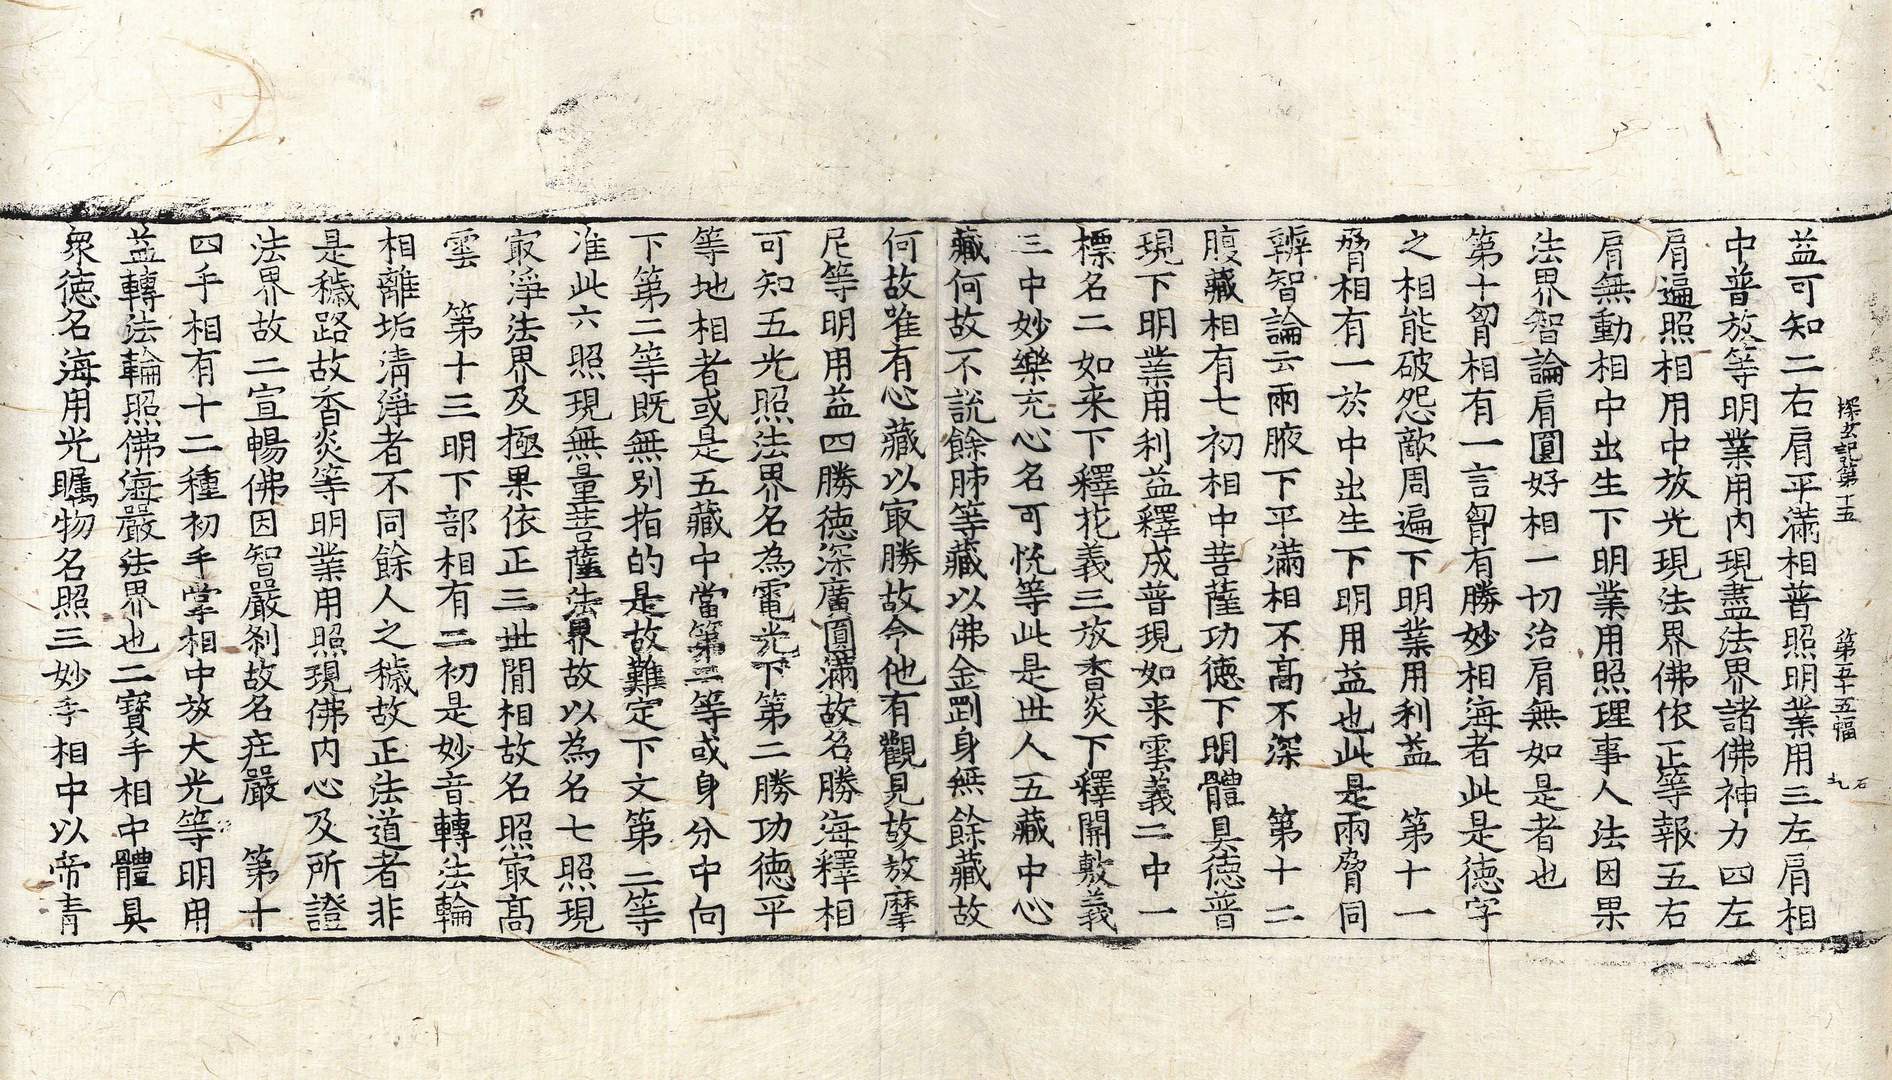 探玄記第十五 第五十五幅 石 九
益可知二右肩平滿相普照明業用三左肩相
中普放等明業用內現盡法界諸佛神力四左
肩遍照相用中放光現法界佛依正等報五右
肩無動相中出生下明業用照理事人法因果
法界智論肩圓好相一切治肩無如是者也
第十胷相有一言胷有勝妙相海者此是德字
之相能破怨敵周遍下明業用利益　第十一
脅相有一於中出生下明用益也此是兩脅同
辨智論云兩腋下平滿相不髙不深　第十二
腹藏相有七初相中菩薩功德下明體具德普
現下明業用利益釋成普現如来雲義二中一
標名二如来下釋花義三放香炎下釋開敷義
三中妙樂充心名可悅等此是世人五藏中心
藏何故不說餘肺等藏以佛金剛身無餘藏故
何故唯有心藏以㝡勝故令他有觀見故放摩
尼等明用益四勝德深廣圓滿故名勝海釋相
可知五光照法界名為電光下第二勝功德平
等地相者或是五藏中當第三等或身分中向
下第二等既無別指的是故難定下文第二等
准此六照現無量菩薩法界故以為名七照現
㝡淨法界及極果依正三世間相故名照㝡髙
雲　第十三明下部相有二初是妙音轉法輪
相離垢淸淨者不同餘人之穢故正法道者非
是穢路故香炎等明業用照現佛內心及所證
法界故二宣暢佛因智嚴刹故名庄嚴　第十
四手相有十二種初手掌相中放大光等明用
益轉法輪照佛海嚴法界也二寶手相中體具
衆德名海用光矚物名照三妙手相中以帝青